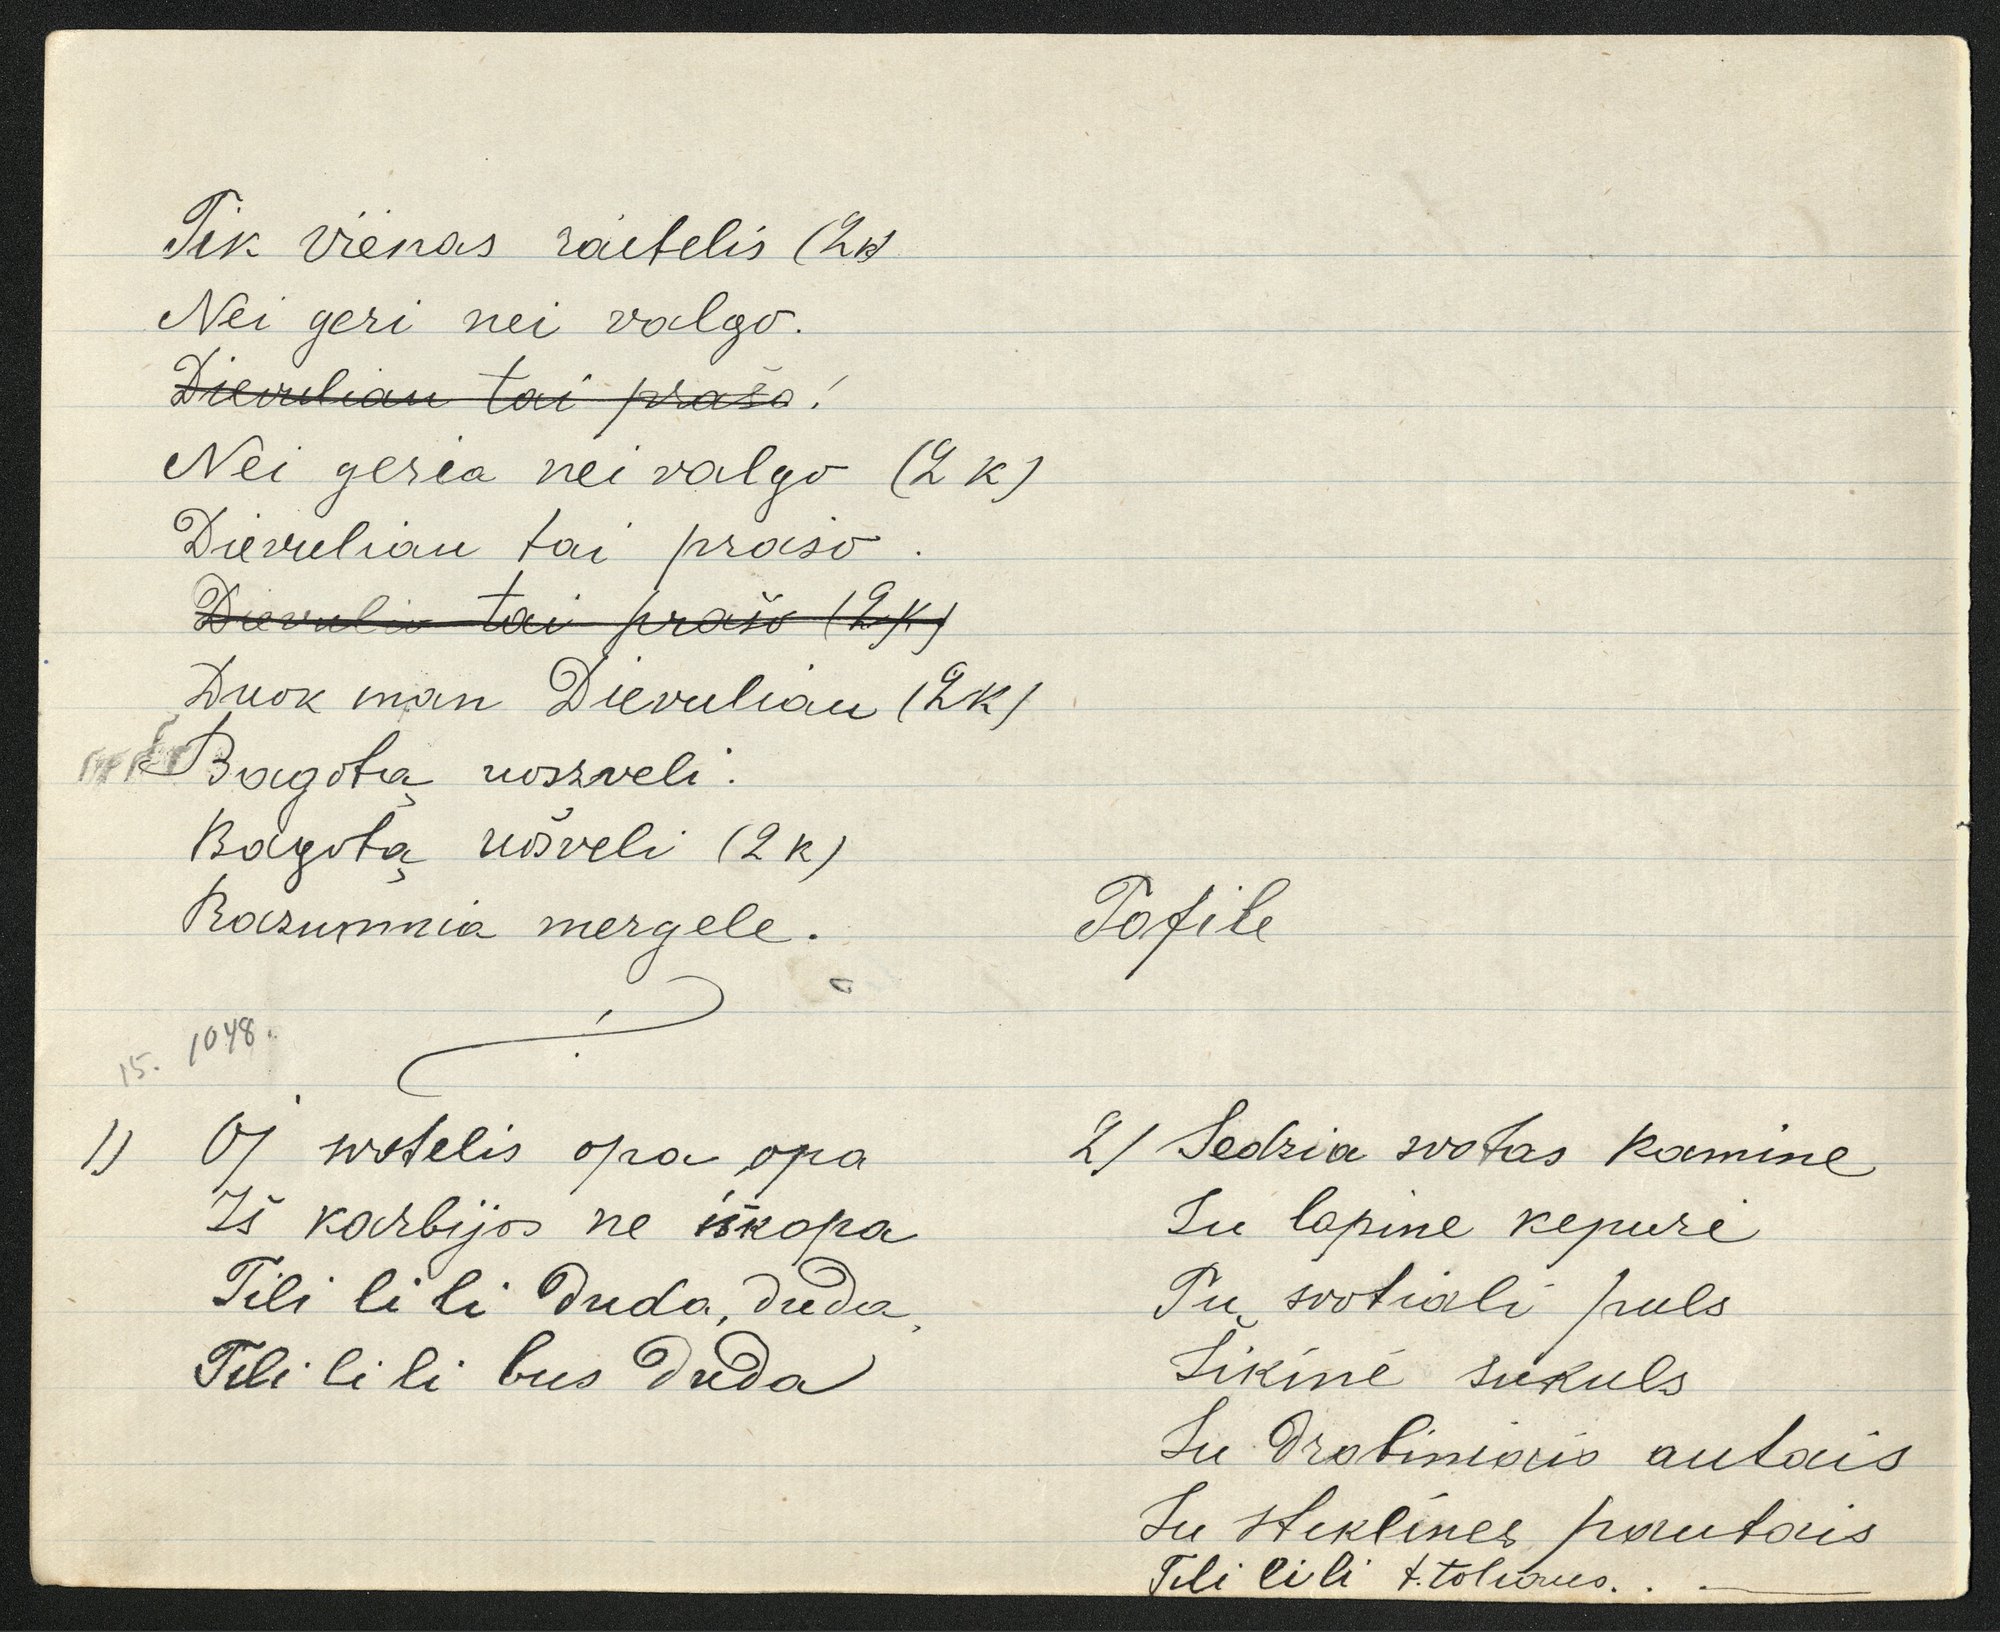 Tik vienas raitelis (2k)
Nei geri nei valgo.
Dievulian tai prašo!
Nei geria nei valgo (2 k)
Dievulian tai prašo.
Dievulio tai prašo (2k)
Duok man Dievulian (2k)
Bagotą uoszveli.
Bagotą uošveli (2 k)
Razumnia mergele.
Pofile
15. 1048.
1) Oj svotelis opa opa
Iš karbijos ne iškopa
Tili li li duda, duda,
Tili li li bus duda
2) Sedzia svotas kamine
Su lapine kepure
Tu svotiali puls
Šikinė sukuls
Su drobiniais autais
Su stiklinės pautais
Tili li li t. toliaus. . .